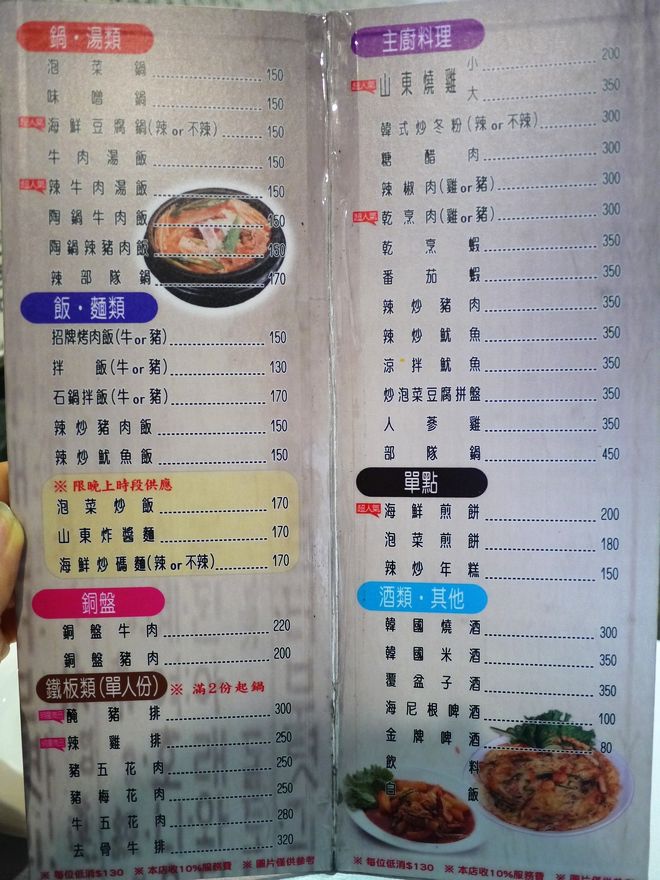 鍋‧湯類
泡菜鍋 150
味噌鍋 150
超人氣 海鮮豆腐鍋(辣or不辣) 150
牛肉湯飯 150
超人氣 辣牛肉湯飯 150
陶鍋牛肉飯 150
陶鍋辣豬肉飯 150
辣部隊鍋 170
飯‧麵類
招牌烤肉飯(牛or豬) 150
拌飯(牛or豬) 130
石鍋拌飯(牛or豬) 170
辣炒豬肉飯 150
辣炒魷魚飯 150
※限晚上時段供應
泡菜炒飯 170
山東炸醬麵 170
海鮮炒碼麵(辣or不辣) 170
銅盤
銅盤牛肉 220
銅盤豬肉 200
鐵板類(單人份) ※ 滿2份起鍋
醃豬排 300
辣雞排 250
豬五花肉 250
豬梅花肉 250
牛五花肉 280
去骨牛排 320
※ 每位低消$130 ※ 本店收10%服務費 ※ 圖片僅供參考
主廚料理
超人氣 山東燒雞 小 200
大 350
韓式炒冬粉(辣or不辣) 300
糖醋肉 300
辣椒肉(雞or豬) 300
超人氣 乾烹肉(雞or豬) 300
乾烹蝦 350
番茄蝦 350
辣炒豬肉 350
辣炒魷魚 350
涼拌魷魚 350
炒泡菜豆腐拼盤 350
人蔘雞 350
部隊鍋 450
單點
超人氣 海鮮煎餅 200
泡菜煎餅 180
辣炒年糕 150
酒類‧其他
韓國燒酒 300
韓國米酒 350
覆盆子酒 350
海尼根啤酒 100
金牌啤酒 80
飲料
白飯
※ 每位低消$130 ※ 本店收10%服務費 ※ 圖片僅供